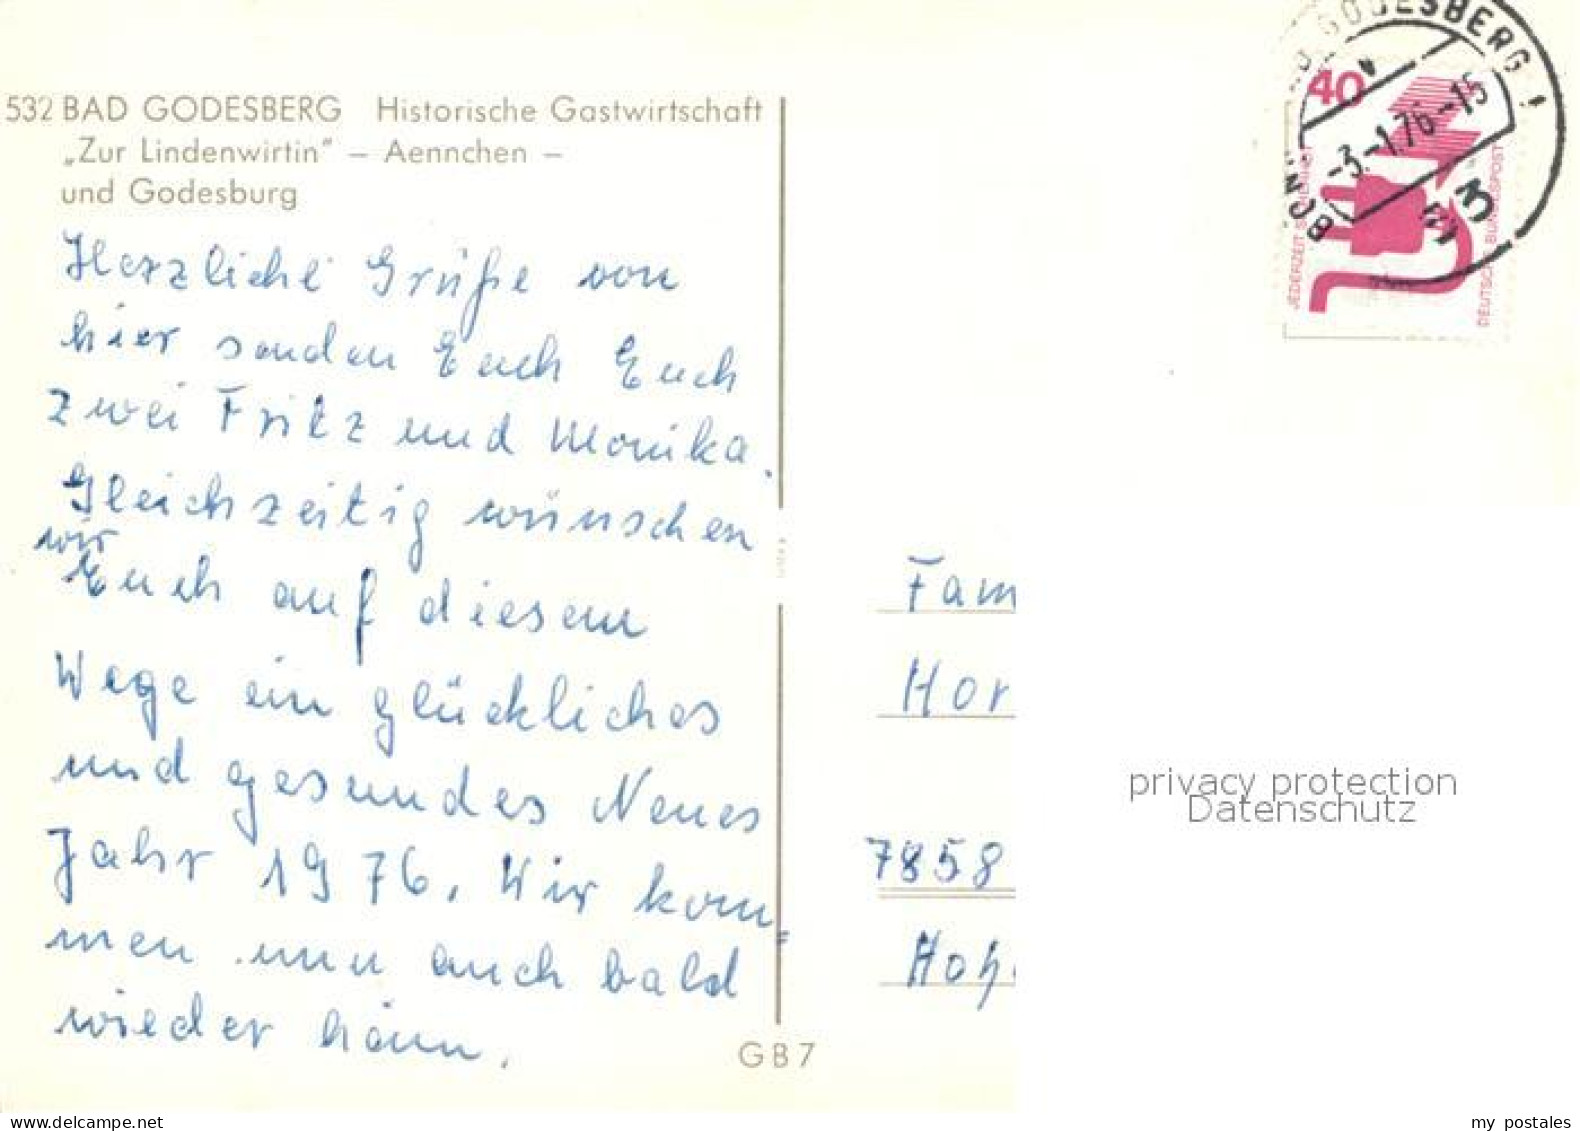 532 BAD GODESBERG Historische Gastwirtschaft
„Zur Lindenwirtin" – Aennchen –
und Godesburg
Herzliche Grüße von
hier senden Euch Euch
zwei Fritz und Monika.
Gleichzeitig wünschen
wir
Euch auf diesem
Wege ein glückliches
und gesundes Neues
Jahr 1976. Wir kom=
men nun auch bald
wieder heim.
GB7
GODESBERG 1
BONN
-3.-1.76-15
53
40
JEDERZEIT SICHERHEIT
DEUTSCHE BUNDESPOST
Fam
Hor
7858
Hoh
privacy protection
Datenschutz
my postales